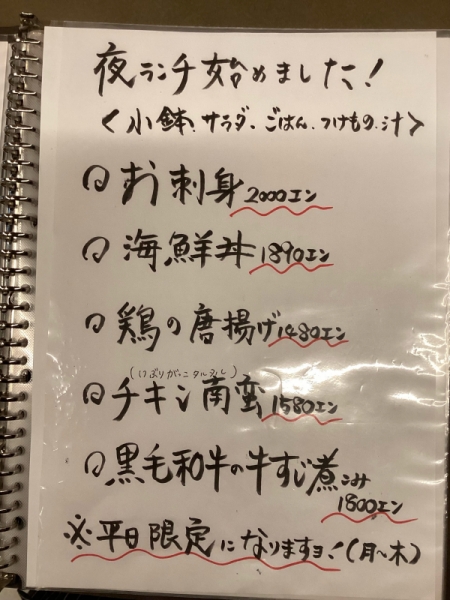 夜ランチ始めました!
<小鉢、サラダ、ごはん、つけもの、汁>
〇お刺身 2000エン
〇海鮮丼 1890エン
〇鶏の唐揚げ 1480エン
(いぶりがっこタルタル)
〇チキン南蛮 1580エン
〇黒毛和牛の牛すじ煮こみ
1800エン
※平日限定になりますヨ!(月〜木)